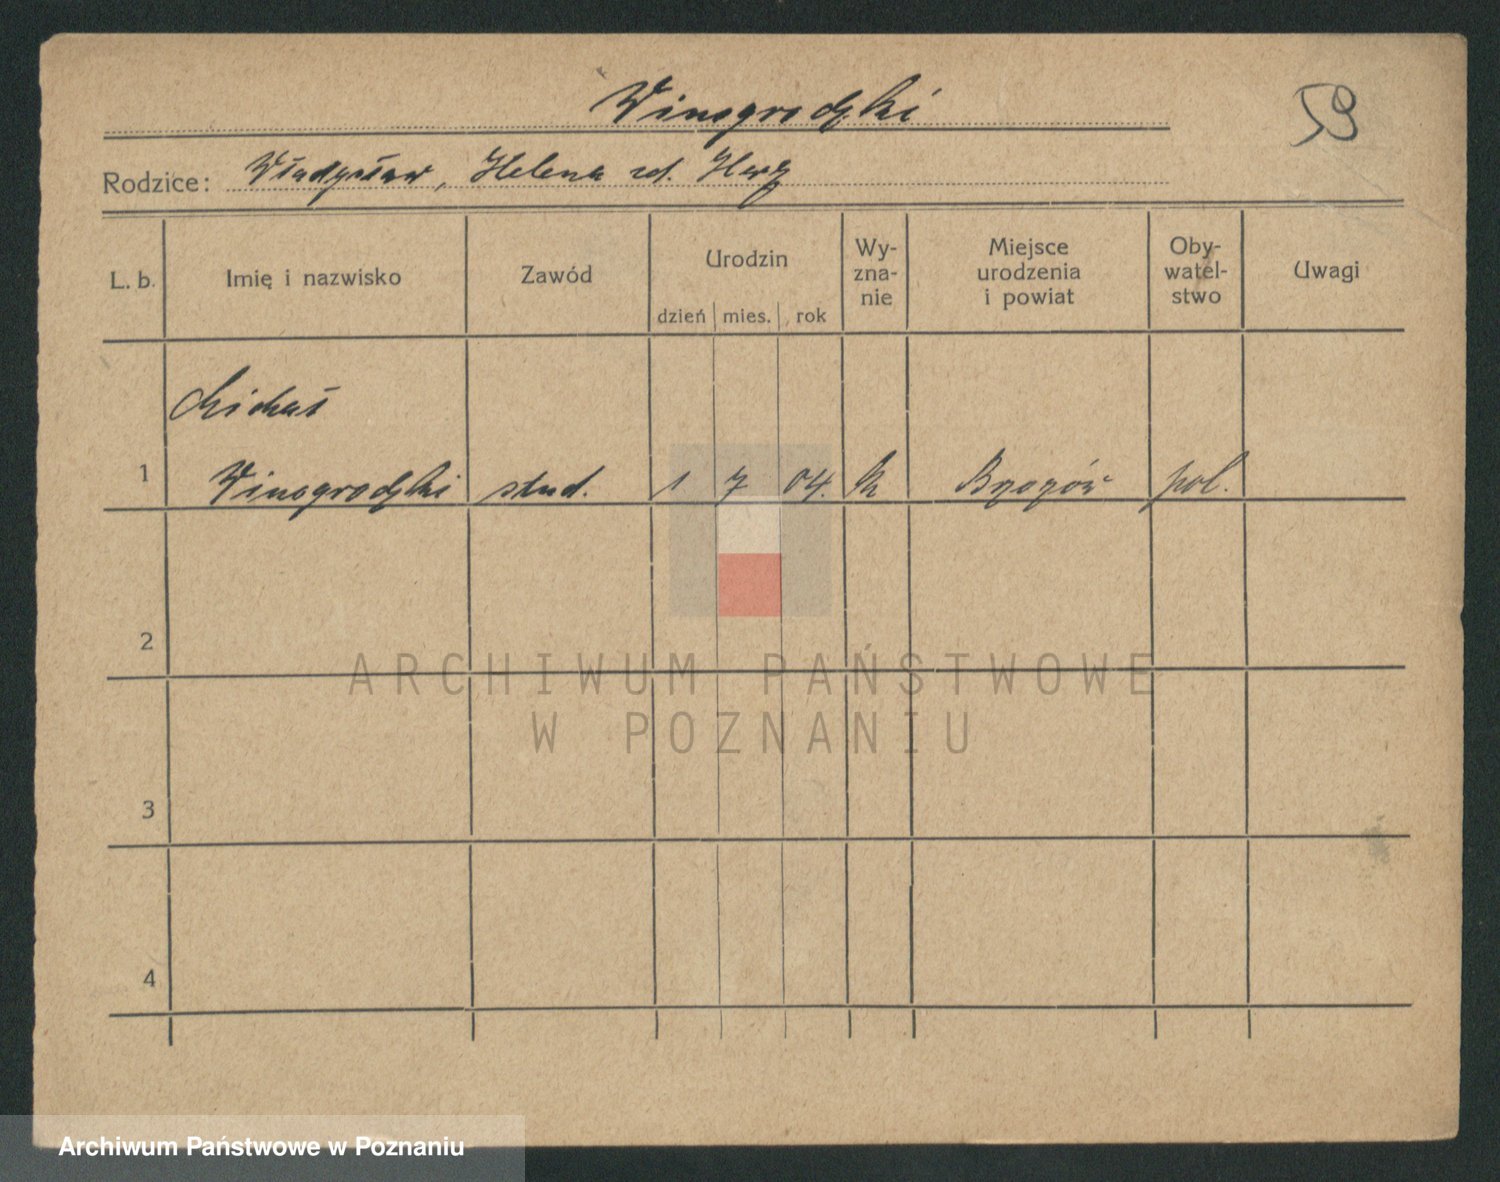 Winogrodzki
59
Rodzice: Władysław, Helena zd. Herz
L. b.
Imię i nazwisko
Zawód
Urodzin
dzień mies. rok
Wy-
zna-
nie
Miejsce
urodzenia
i powiat
Oby-
watel-
stwo
Uwagi
Michał
1 Winogrodzki stud. 1 7 04. k pol.
2
3
4
ARCHIWUM PAŃSTWOWE
W POZNANIU
Archiwum Państwowe w Poznaniu